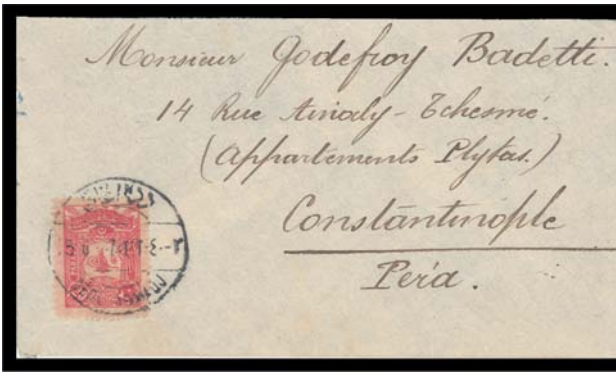 Monsieur Godefroy Badetti.
14 Rue Ainaly-Tchesmé.
(Appartements Plytas.)
Constantinople
Péra.